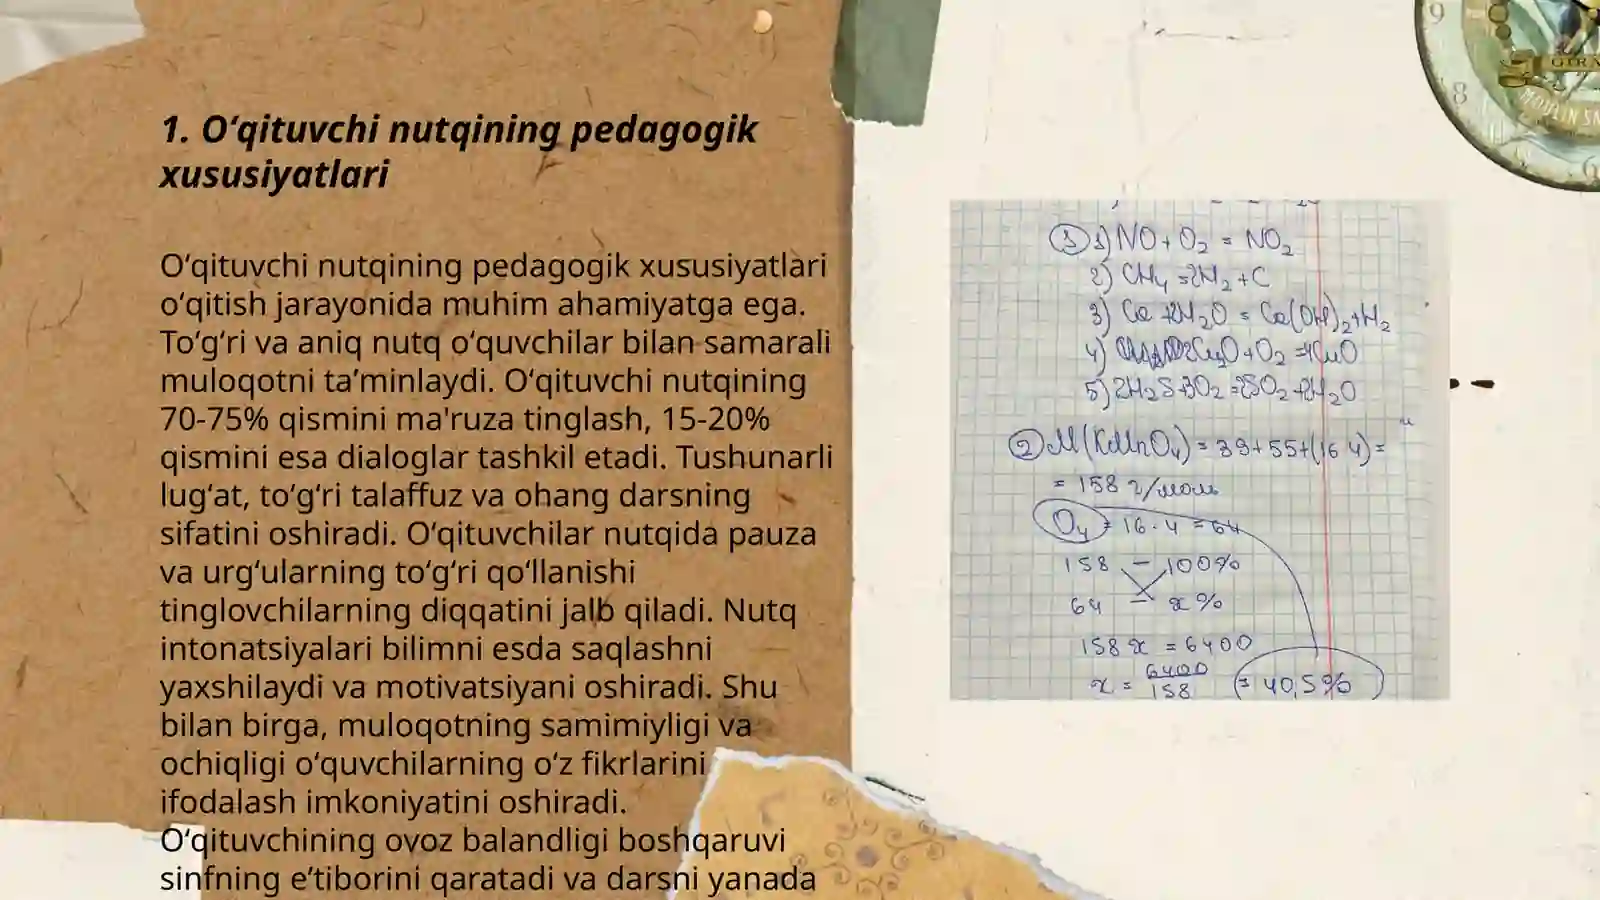 1. Oʻqituvchi nutqining pedagogik
xususiyatlari
Oʻqituvchi nutqining pedagogik xususiyatlari
oʻqitish jarayonida muhim ahamiyatga ega.
Toʻgʻri va aniq nutq oʻquvchilar bilan samarali
muloqotni taʼminlaydi. Oʻqituvchi nutqining
70-75% qismini ma'ruza tinglash, 15-20%
qismini esa dialoglar tashkil etadi. Tushunarli
lugʻat, toʻgʻri talaffuz va ohang darsning
sifatini oshiradi. Oʻqituvchilar nutqida pauza
va urgʻularning toʻgʻri qoʻllanishi
tinglovchilarning diqqatini jalb qiladi. Nutq
intonatsiyalari bilimni esda saqlashni
yaxshilaydi va motivatsiyani oshiradi. Shu
bilan birga, muloqotning samimiyligi va
ochiqligi oʻquvchilarning oʻz fikrlarini
ifodalash imkoniyatini oshiradi.
Oʻqituvchining ovoz balandligi boshqaruvi
sinfning eʼtiborini qaratadi va darsni yanada
1) NO + O₂ = NO₂
2) CH₄ = 2H₂ + C
3) Ca + 2H₂O = Ca(OH)₂ + H₂
4) 2Cu₂O + O₂ = 4CuO
5) 2H₂S + 3O₂ = 2SO₂ + 2H₂O
② M(KMnO₄) = 39 + 55 + (16·4) =
= 158 г/моль
O₄ = 16 · 4 = 64
158 — 100%
64 — x%
158 x = 6400
x = 6400/158 = 40,5%
9
8
6
MOULIN